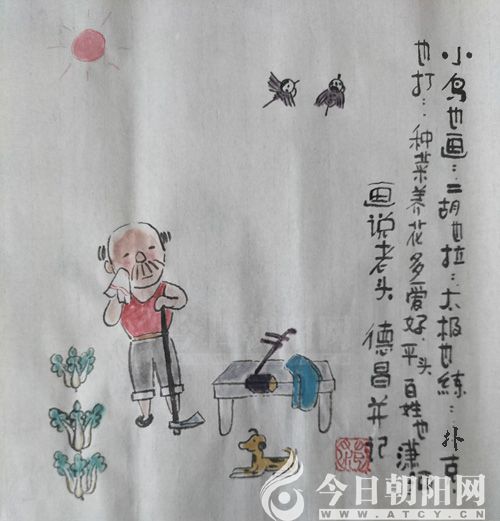 小鸟也画：二胡也拉：太极也练：扑克
也打：种菜养花多爱好平头百姓也潇洒
画说老头 德昌并记
今日朝阳网
WWW.ATCY.CN